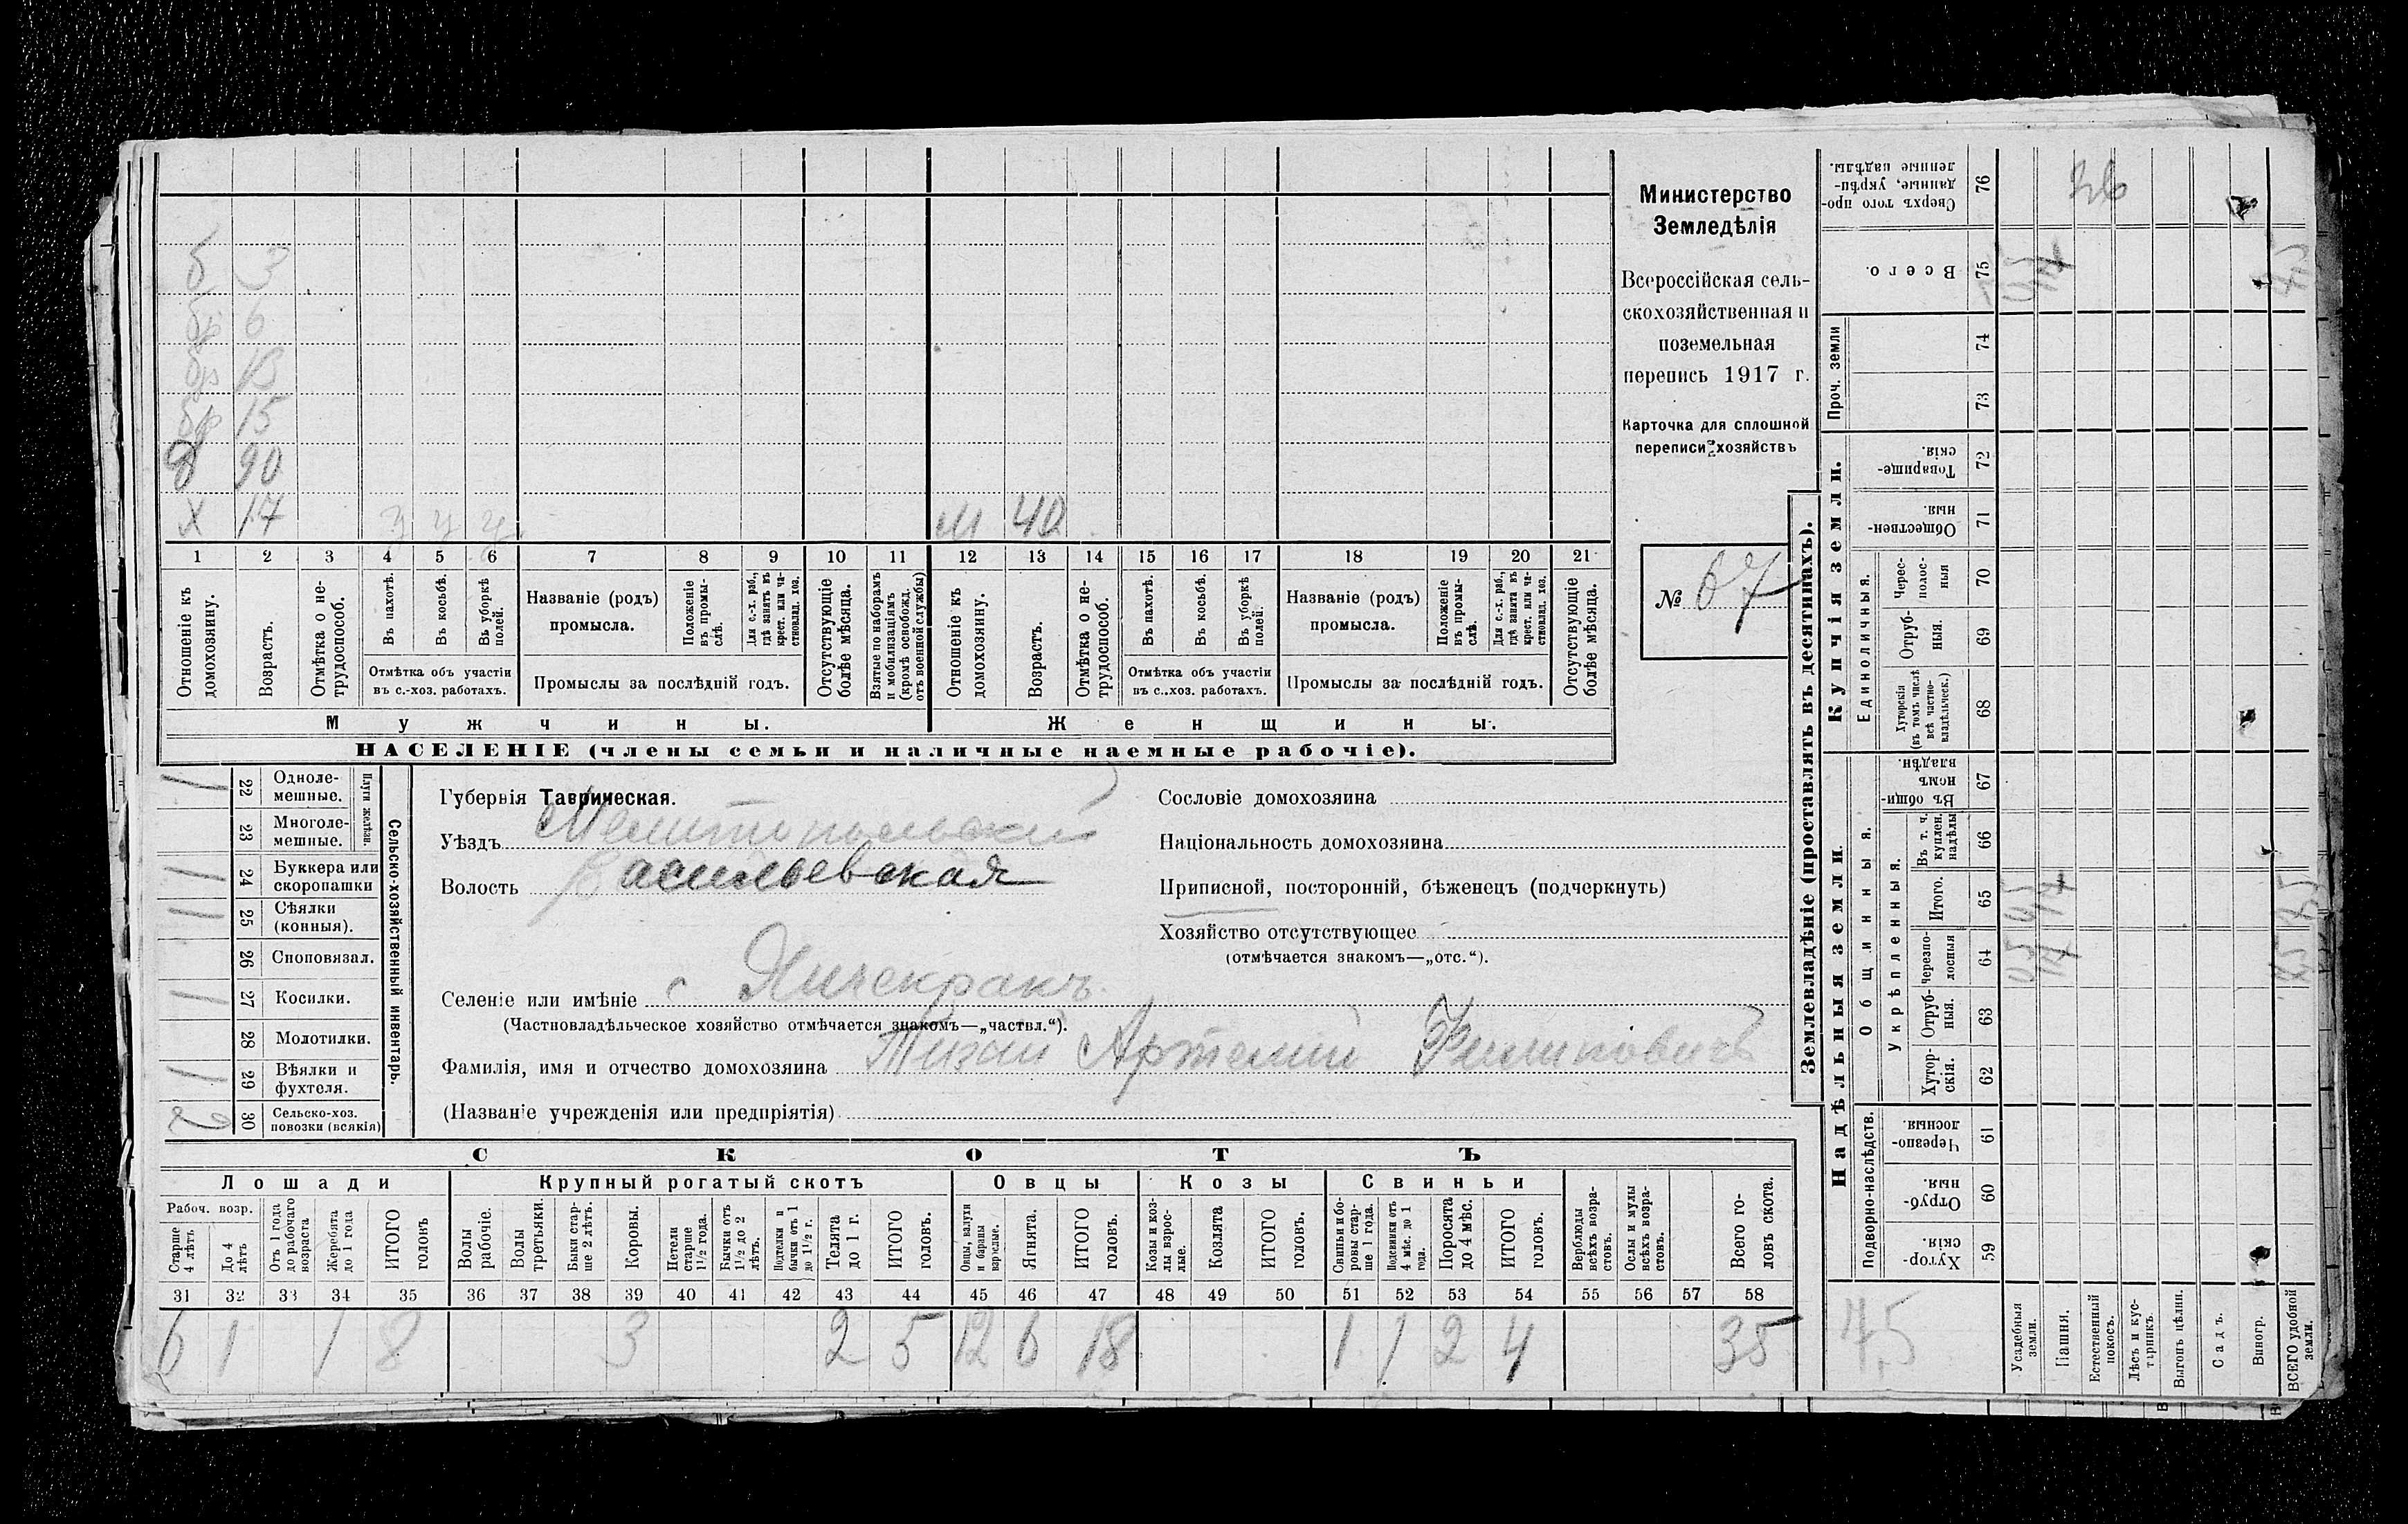 б 3
бр 6
бр 13
бр 15
д 90
х 17 у у у м 40
1 2 3 4 5 6 7 8 9 10 11 12 13 14 15 16 17 18 19 20 21
Отношеніе къ домохозяину.
Возрастъ.
Отмѣтка о не-трудоспособ.
Въ пахотѣ.
Въ косьбѣ.
Въ уборкѣ полей.
Отмѣтка объ участіи
въ с.-хоз. работахъ.
Названіе (родъ)
промысла.
Положеніе въ промы-слѣ.
Для с.-х. раб., гдѣ занятъ въ крест. или ча-стновлад. хоз.
Промыслы за послѣдній годъ.
Отсутствующіе болѣе мѣсяца.
Взятые по наборамъ и мобилизаціямъ (кромѣ освобожд. отъ военной службы)
Отношеніе къ домохозяину.
Возрастъ.
Отмѣтка о не-трудоспособ.
Въ пахотѣ.
Въ косьбѣ.
Въ уборкѣ полей.
Отмѣтка объ участіи
въ с.-хоз. работахъ.
Названіе (родъ)
промысла.
Положеніе въ промы-слѣ.
Для с.-х. раб., гдѣ занята въ крест. или ча-стновлад. хоз.
Промыслы за послѣдній годъ.
Отсутствующіе болѣе мѣсяца.
Мужчины. Женщины.
НАСЕЛЕНІЕ (члены семьи и наличные наемные рабочіе).
Министерство
Земледѣлія
Всероссійская сель-
скохозяйственная и
поземельная
перепись 1917 г.
Карточка для сплошной
переписи хозяйствъ
№ 67
1 22 Одноле-мешные.
23 Многоле-мешные.
Плуги желѣзн.
1 24 Буккера или скоропашки
1 25 Сѣялки (конныя).
26 Сноповязал.
1 27 Косилки.
28 Молотилки.
1 29 Вѣялки и фухтеля.
2 30 Сельско-хоз. повозки (всякія)
Сельско-хозяйственный инвентарь.
Губернія Таврическая.
Уѣздъ Мелитопольский
Волость Васильевская
Селеніе или имѣніе с Янчекракъ
(Частновладѣльческое хозяйство отмѣчается знакомъ—„частвл.“).
Фамилія, имя и отчество домохозяина Артемий Филиповичъ
(Названіе учрежденія или предпріятія)
Сословіе домохозяина
Національность домохозяина
Приписной, посторонній, бѣженецъ (подчеркнуть)
Хозяйство отсутствующее
(отмѣчается знакомъ—„отс.“).
СКОТЪ
Лошади Крупный рогатый скотъ Овцы Козы Свиньи
Рабоч. возр.
Старше 4 лѣтъ
До 4 лѣтъ
Отъ 1 года до рабочаго возраста
Жеребята до 1 года
ИТОГО головъ
Волы рабочіе.
Волы третьяки.
Быки стар-ше 2 лѣтъ.
Коровы.
Нетели старше 1½ года.
Бычки отъ 1½ до 2 лѣтъ.
Подтелки и бычки отъ 1 до 1½ г.
Телята до 1 г.
ИТОГО головъ.
Овцы, валухи и бараны взрослые.
Ягнята.
ИТОГО головъ.
Козы и коз-лы взрос-лые.
Козлята
ИТОГО головъ.
Свиньи и бо-ровы стар-ше 1 года.
Подсвинки отъ 4 мѣс. до 1 года.
Поросята до 4 мѣс.
ИТОГО головъ.
Верблюды всѣхъ возра-стовъ.
Ослы и мулы всѣхъ возра-стовъ.
Всего го-ловъ скота.
31 32 33 34 35 36 37 38 39 40 41 42 43 44 45 46 47 48 49 50 51 52 53 54 55 56 57 58
6 1 1 8 3 2 5 12 6 18 1 1 2 4 35
Землевладѣніе (проставлять въ десятинахъ).
Надѣльныя земли
Купчія земли.
Проч. земли
Подворно-наслѣдств.
Общинныя.
Укрѣпленныя.
Единоличныя.
Хутор-скія. 59
Отруб-ныя. 60
Черезпо-лосныя. 61
Хутор-скія. 62
Отруб-ныя. 63
Черезпо-лосныя 64
Итого. 65
Въ т. ч. куплен. надѣлы 66
Въ общи-номъ владѣн. 67
Хуторскія (въ томъ числѣ всѣ частно-владѣльческ.) 68
Отруб-ныя. 69
Черес-полос-ныя 70
Обществен-ныя. 71
Товарище-скія. 72
73
74
Всего. 75
Сверхъ того про-данные, укрѣп-ленные надѣлы. 76
Усадебныя земли.
Пашня.
Естественный покосъ.
Лѣсъ и кус-тарникъ.
Выгонъ цѣлин.
Садъ.
Виногр.
ВСЕГО удобной земли.